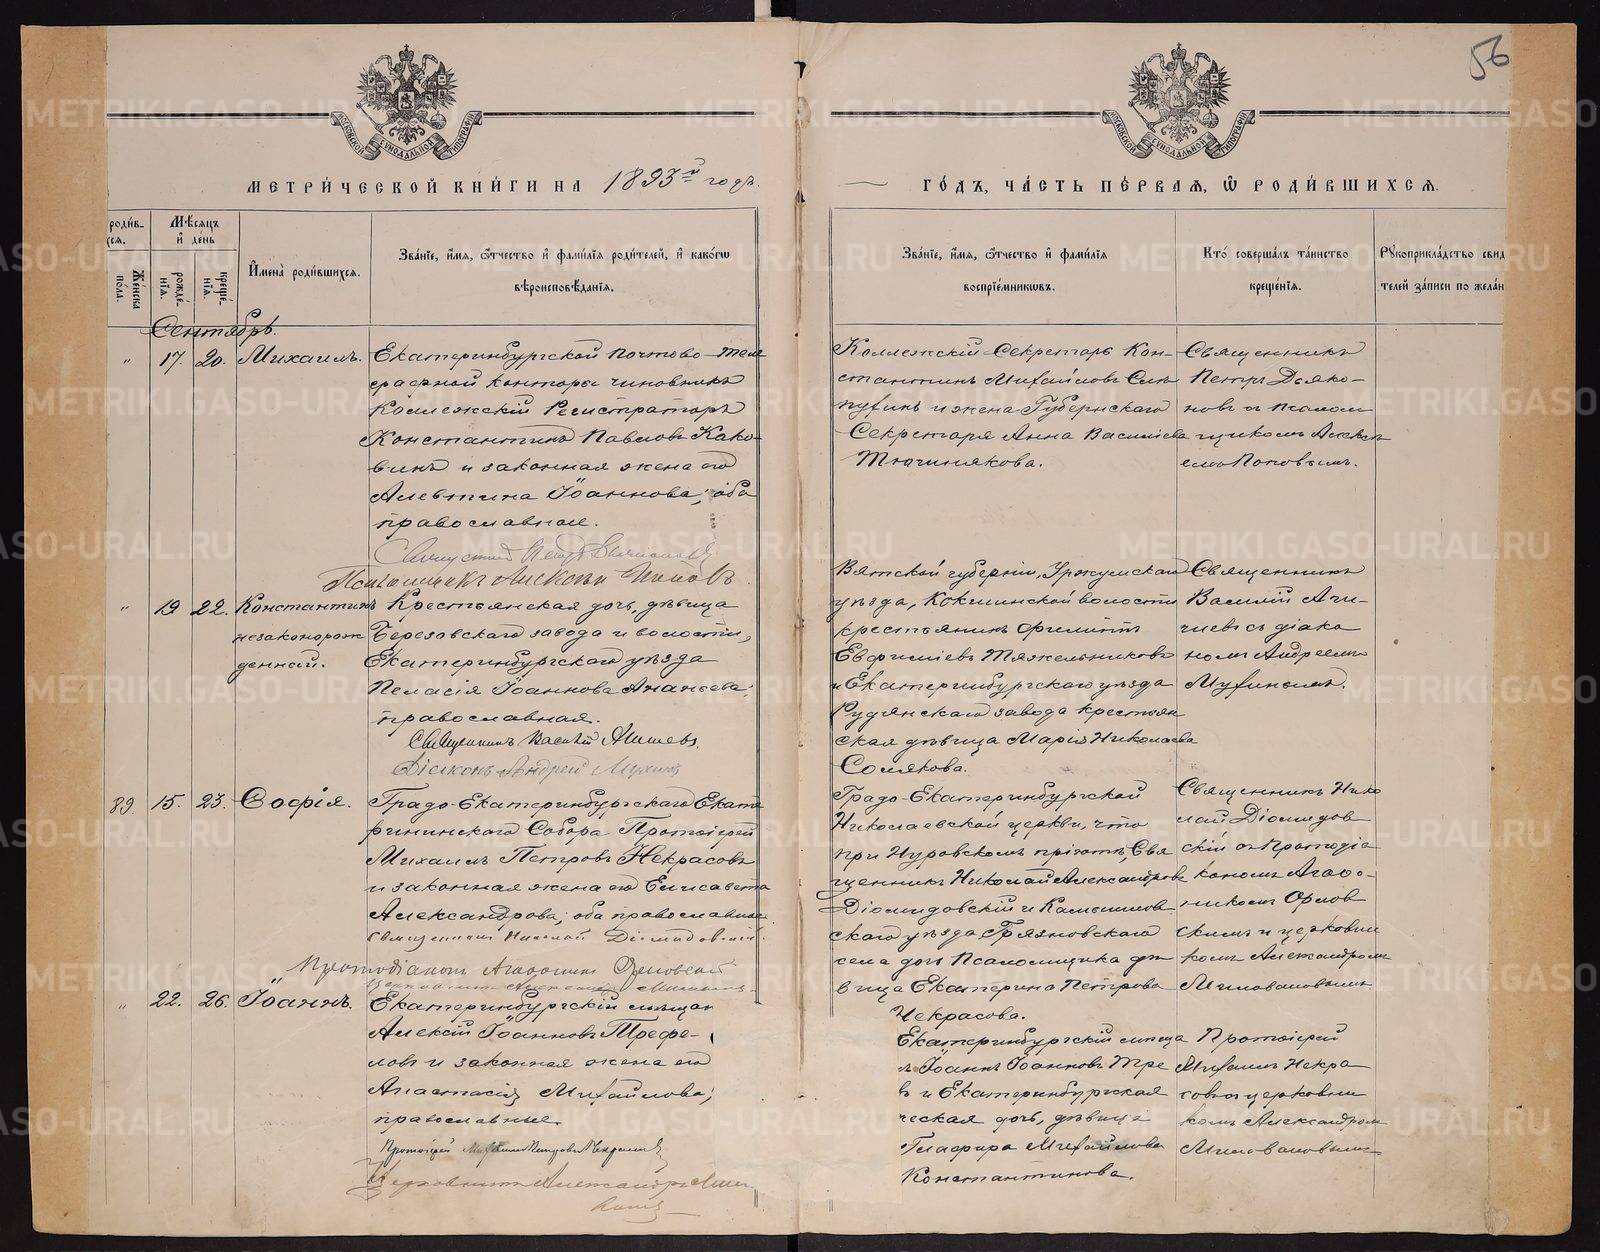 56
МОСКОВСКОЙ СѴНОДАЛЬНОЙ ТИПОГРАФІИ
МОСКОВСКОЙ СѴНОДАЛЬНОЙ ТИПОГРАФІИ
МЕТРИ́ЧЕСКОЙ КНИ́ГИ НА 1893й годъ.
ГО́ДЪ, ЧА́СТЬ ПЕ́РВАЯ, Ѡ҆ РОДИ́ВШИХСЯ.
роди́в-
ся.
Же́нска по́ла.
Мѣ́сяцъ и҆ де́нь
рожде́-нїя.
креще́-нїя.
И҆мена̀ роди́вшихся.
Зва́нїе, и҆́мя, ѻ҆́тчество и҆ фами́лїя роди́телей, и҆ како́гѡ
вѣроисповѣ́данїя.
Зва́нїе, и҆́мя, ѻ҆́тчество и҆ фами́лїя
воспрїе́мниковъ.
Кто̀ соверша́лъ та́инство
креще́нїя.
Рꙋкоприкла́дство свид
телей за́писи по жела́н
Сентябрь.
" 17. 20. Михаилъ.
Екатеринбургской почтово-теле
графной конторы чиновникъ
Коллежскій Регистраторъ
Константинъ Павловъ Како-
винъ и законная жена его
Алевтина Іоаннова; оба
православные.
Священникъ Петръ
Псаломщикъ Алексѣй Поповъ.
Коллежскій Секретарь Кон-
стантинъ Михайловъ
и жена Губернскаго
Секретаря Анна Василіева
Тюгинякова.
Священникъ
Петръ Дьяко-
новъ съ псалом
щикомъ Алексѣ
емъ Поповымъ.
" 19 22. Константинъ
незаконорож
денный.
Крестьянская дочь, дѣвица
Березовскаго завода и волости,
Екатеринбургскаго уѣзда
Пелагія Іоаннова Ананьева;
православная.
Священникъ Василій
Діаконъ Андрей Мухинъ
Вятской губерніи, Уржумскаго
уѣзда, Кокшинской волости
крестьянинъ Филиппъ
Евфиміевъ Тяжельниковъ
и Екатеринбургскаго уѣзда
Рудянскаго завода крестьян
ская дѣвица Марія Николаева
Солякова.
Священникъ
Василій
съ діако
номъ Андреемъ
Мухинымъ.
89. 15. 23. Софія.
Градо-Екатеринбургскаго Екате
рининскаго Собора Протоіерей
Михаилъ Петровъ Некрасовъ
и законная жена его Елисавета
Александрова; оба православные.
Священникъ Николай Діомидовскій.
Протодіаконъ Агафоникъ Орловскій
Градо-Екатеринбургской
Николаевской церкви, что
при Нуровскомъ пріютѣ, Свя
щенникъ Николай Александровъ
Діомидовскій и Камышлов
скаго уѣзда Грязновскаго
села дочь Псаломщика дѣ
вица Екатерина Петрова
Некрасова.
Священникъ Нико
лай Діомидов
скій съ Протодіа
кономъ Агафо-
никомъ Орлов
скимъ и церковни
комъ Александромъ
Миловановымъ.
" 22. 26. Іоаннъ.
Екатеринбургскій мѣщан
Алексій Іоанновъ Трефе-
ловъ и законная жена его
Анастасія Михайлова;
православные.
Протоіерей Михаилъ Петровъ Некрасовъ
Церковникъ Александръ
Екатеринбургскій мѣща
ъ Іоаннъ Іоанновъ Тре
въ и Екатеринбургская
ческая дочь, дѣвица
Глафира Михайлова
Константинова.
Протоіерей
Михаилъ Некра
совъ съ церковни
комъ Александромъ
Миловановымъ.
METRIKI.GASO-URAL.RU